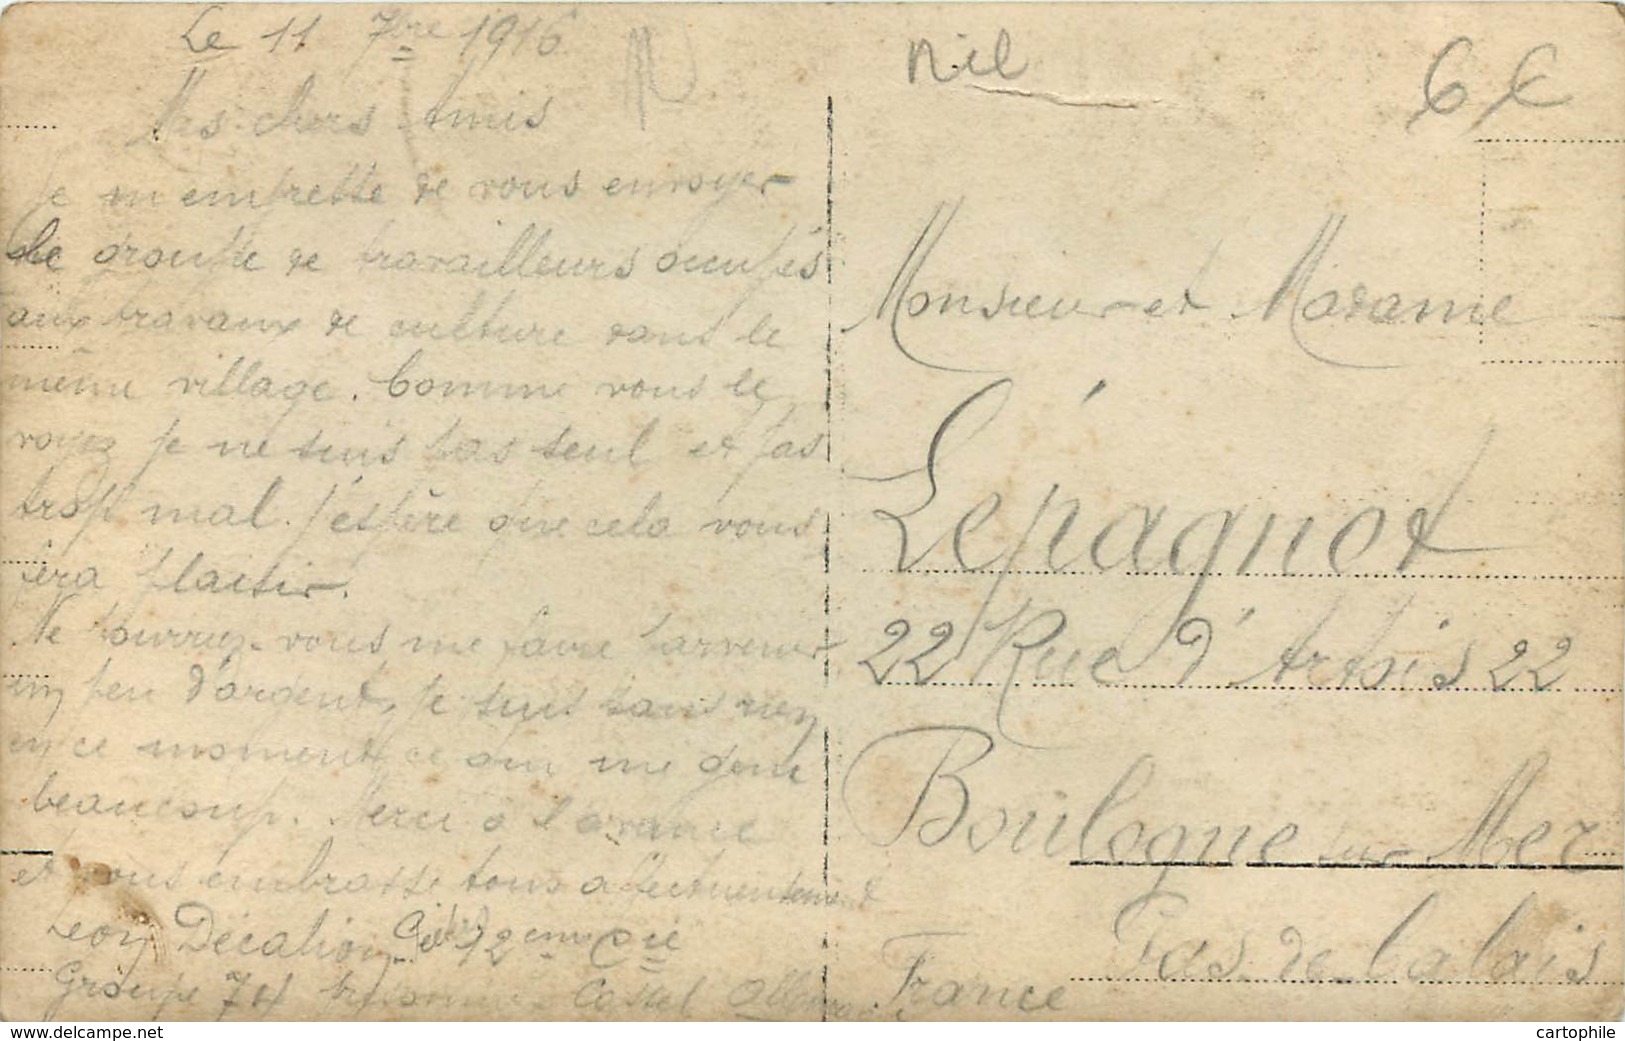 Le 11 7bre 1916
Mes chers Amis
je m'empresse de vous envoyer
le groupe de travailleurs occupés
aux travaux de culture dans le
même village. Comme vous le
voyez je ne suis pas seul et pas
trop mal. j'espère que cela vous
fera plaisir.
Ne pourriez-vous me faire parvenir
un peu d'argent, je suis sans rien
en ce moment ce qui me gêne
beaucoup. Merci à l'avance
et vous embrasse tous affectueusement
Léon Décalion 12eme Cie
Groupe 74 prisonnier Cassel Allemagne
nil
6€
Monsieur et Madame
Lépagnot
22 Rue d'Artois 22
Boulogne sur Mer
Pas-de-Calais
France
www.delcampe.net
cartophile